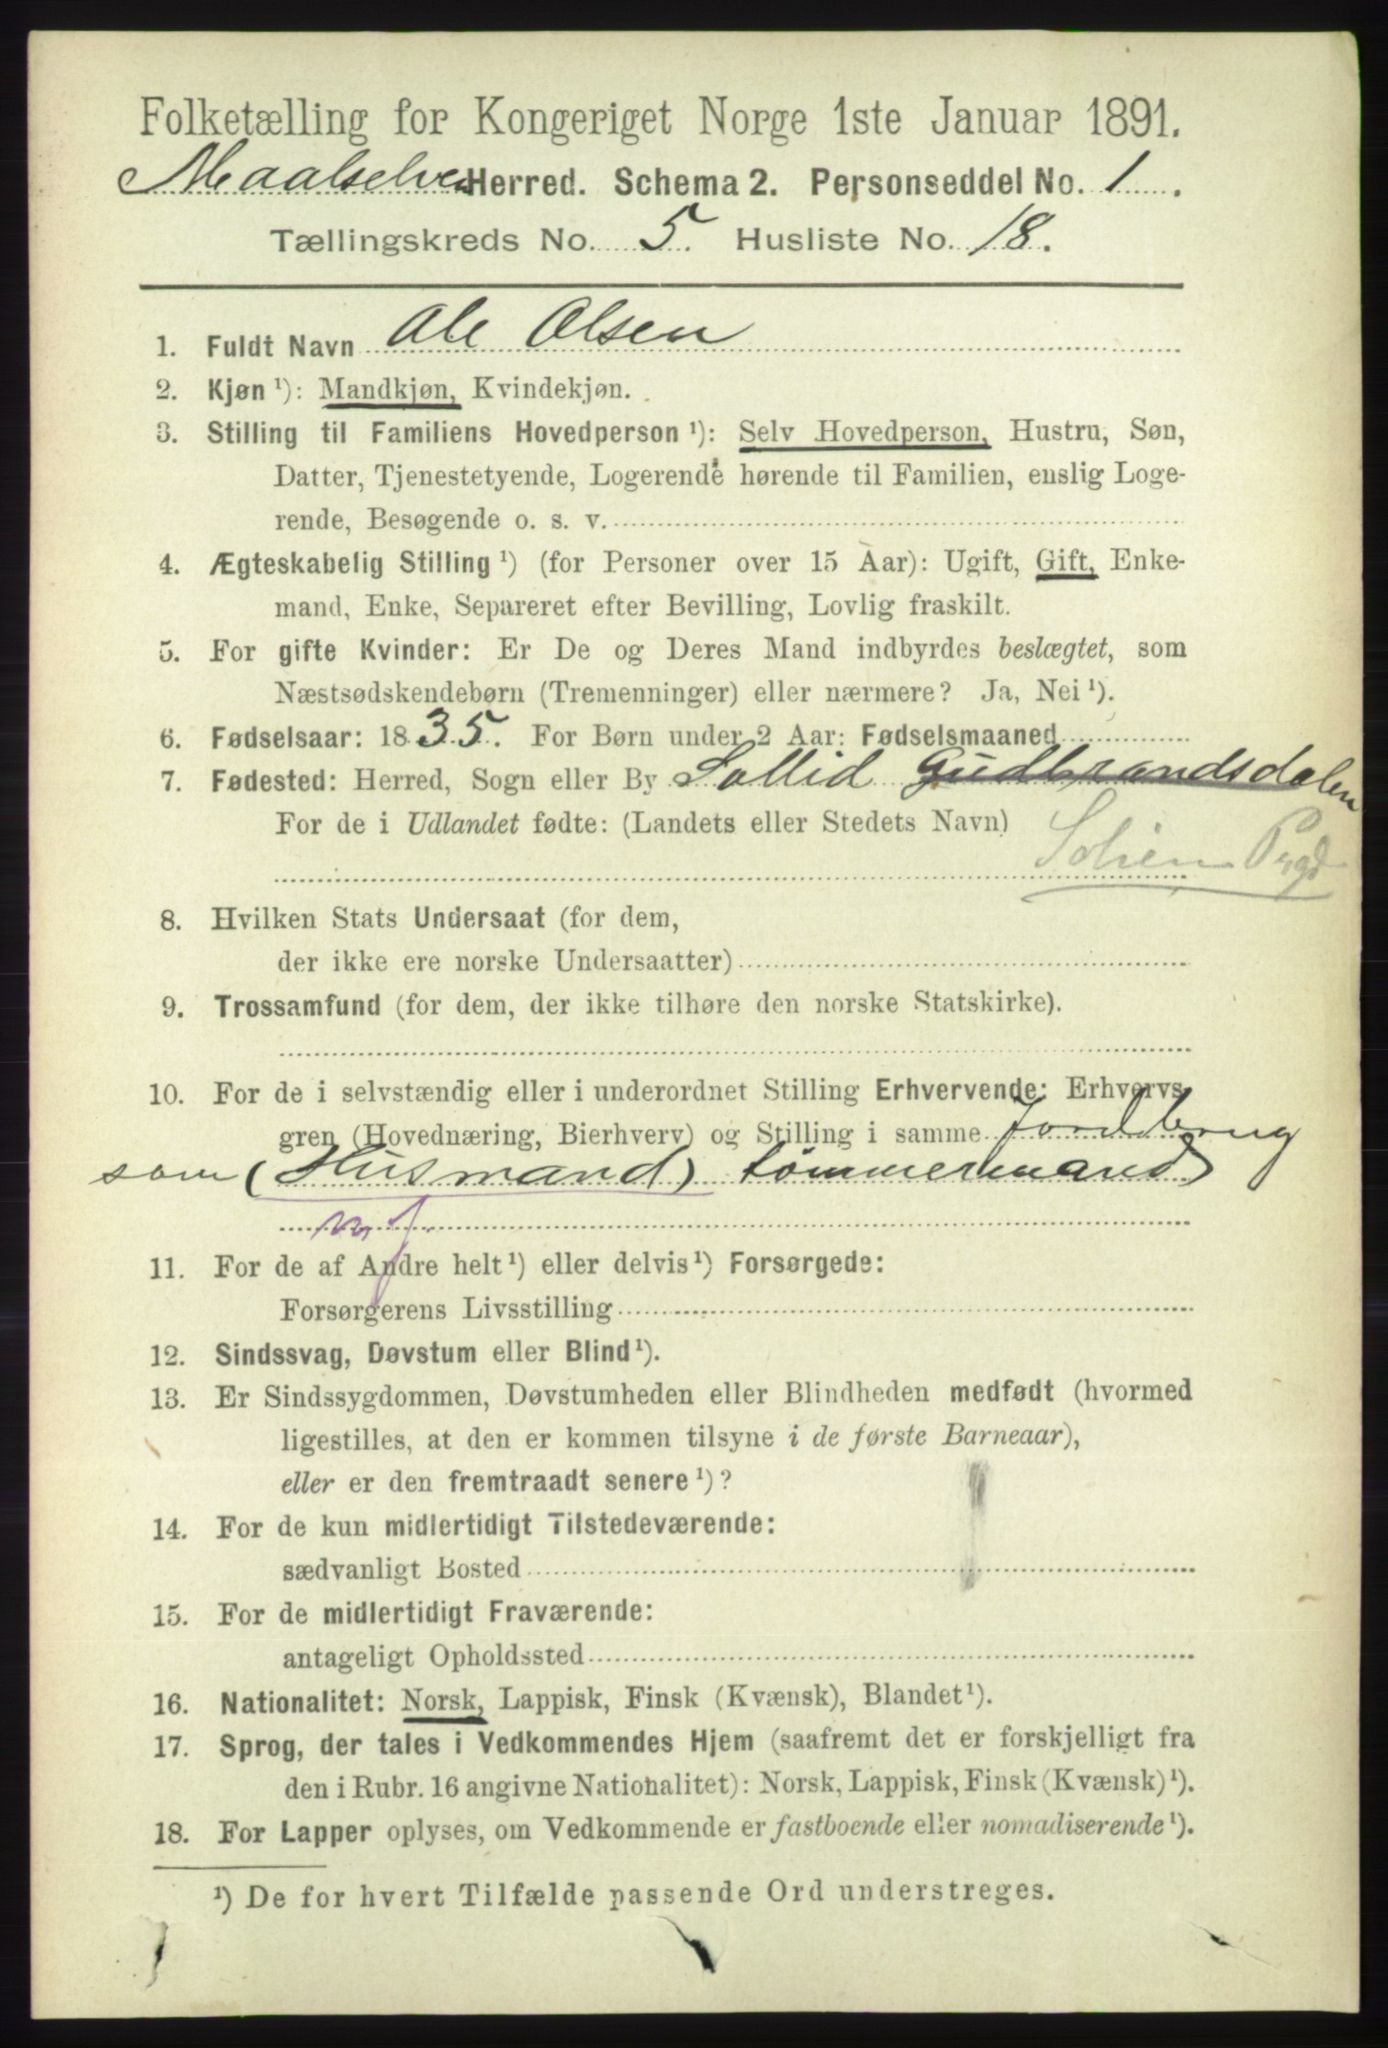 Folketælling for Kongeriget Norge 1ste Januar 1891.
Maalselven Herred. Schema 2. Personseddel No. 1.
Tællingskreds No. 5. Husliste No. 18.
1. Fuldt Navn Ole Olsen
2. Kjøn ¹): Mandkjøn, Kvindekjøn.
3. Stilling til Familiens Hovedperson ¹): Selv Hovedperson, Hustru, Søn,
Datter, Tjenestetyende, Logerende hørende til Familien, enslig Loge-
rende, Besøgende o. s. v.
4. Ægteskabelig Stilling ¹) (for Personer over 15 Aar): Ugift, Gift, Enke-
mand, Enke, Separeret efter Bevilling, Lovlig fraskilt.
5. For gifte Kvinder: Er De og Deres Mand indbyrdes beslægtet, som
Næstsødskendebørn (Tremenninger) eller nærmere? Ja, Nei ¹).
6. Fødselsaar: 1835. For Børn under 2 Aar: Fødselsmaaned
7. Fødested: Herred, Sogn eller By Sollid Gudbrandsdalen
For de i Udlandet fødte: (Landets eller Stedets Navn)
8. Hvilken Stats Undersaat (for dem,
der ikke ere norske Undersaatter)
9. Trossamfund (for dem, der ikke tilhøre den norske Statskirke).
10. For de i selvstændig eller i underordnet Stilling Erhvervende: Erhvervs
gren (Hovednæring, Bierhverv) og Stilling i samme Jordbrug
som (Husmand) tømmermand
m. j.
11. For de af Andre helt ¹) eller delvis ¹) Forsørgede:
Forsørgerens Livsstilling
12. Sindssvag, Døvstum eller Blind ¹).
13. Er Sindssygdommen, Døvstumheden eller Blindheden medfødt (hvormed
ligestilles, at den er kommen tilsyne i de første Barneaar),
eller er den fremtraadt senere ¹)?
14. For de kun midlertidigt Tilstedeværende:
sædvanligt Bosted
15. For de midlertidigt Fraværende:
antageligt Opholdssted
16. Nationalitet: Norsk, Lappisk, Finsk (Kvænsk), Blandet ¹).
17. Sprog, der tales i Vedkommendes Hjem (saafremt det er forskjelligt fra
den i Rubr. 16 angivne Nationalitet): Norsk, Lappisk, Finsk (Kvænsk) ¹).
18. For Lapper oplyses, om Vedkommende er fastboende eller nomadiserende ¹).
¹) De for hvert Tilfælde passende Ord understreges.